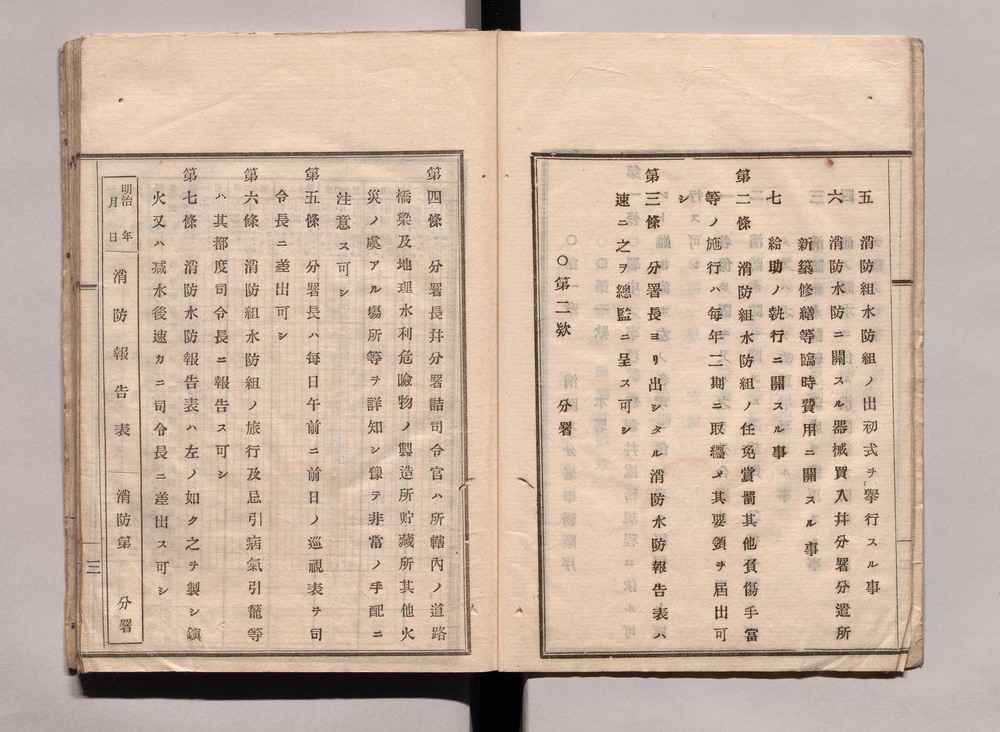 五　消防組水防組ノ出初式ヲ擧行スル事
六　消防水防ニ開スル器械買入幷分署分遣所
新築修繕等臨時費用ニ開スル事
七　給助ノ執行ニ開スル事
第二條　消防組水防組ノ任免賞罰其他負傷手當
等ノ施行ハ每年二期ニ取纏メ其要領ヲ屆出可
シ
第三條　分署長ヨリ出シタル消防水防報告表ハ
速ニ之ヲ總監ニ呈ス可シ
〇第二欵　分署
第四條　分署長幷分署詰司令官ハ所轄內ノ道路
橋梁及地理水利危險物ノ製造所貯藏所其他火
災ノ虞アル塲所等ヲ詳知シ豫テ非常ノ手配ニ
注意ス可シ
第五條　分署長ハ每日午前ニ前日ノ巡視表ヲ司
令長ニ差出可シ
第六條　消防組水防組ノ旅行及忌引病氣引籠等
ハ其都度司令長ニ報告ス可シ
第七條　消防水防報告表ハ左ノ如ク之ヲ製シ鎭
火又ハ减水後速カニ司令長ニ差出ス可シ
明治　年
月　日
消防報告表
消防第　分署
三